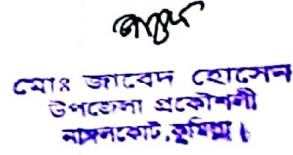 মোঃ জাবেদ হোসেন
উপজেলা প্রকৌশলী
নাঙ্গলকোট, কুমিল্লা।